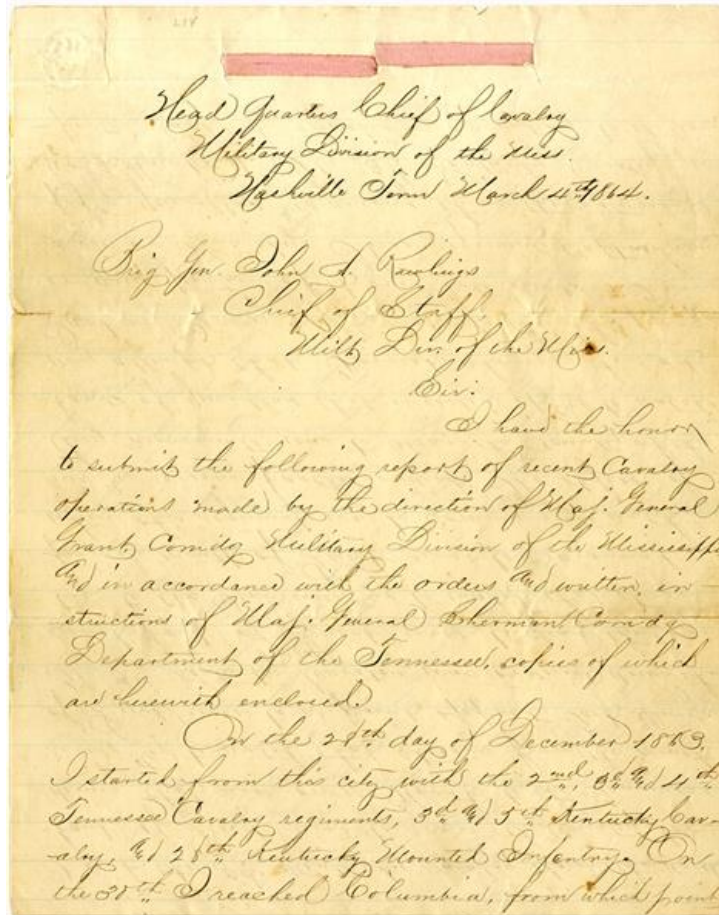 Head Quarters Chief of Cavalry
Military Division of the Miss.
Nashville Tenn March 4th 1864.
Brig Gen. John A. Rawlings
Chief of Staff.
Milt. Div. of the Miss.
Sir:
I have the honor
to submit the following report of recent Cavalry
operations made by the direction of Maj. General
Grant Comdg Military Division of the Mississippi
and in accordance with the orders and written in
structions of Maj. General Sherman Comdg
Department of the Tennessee, copies of which
are herewith enclosed.
On the 28th day of December 1863.
I started from this city with the 2nd, 3d and 4th
Tennessee Cavalry regiments, 3d and 5th Kentucky Cav-
alry, and 28th Kentucky Mounted Infantry. On
the 30th I reached Columbia, from which point